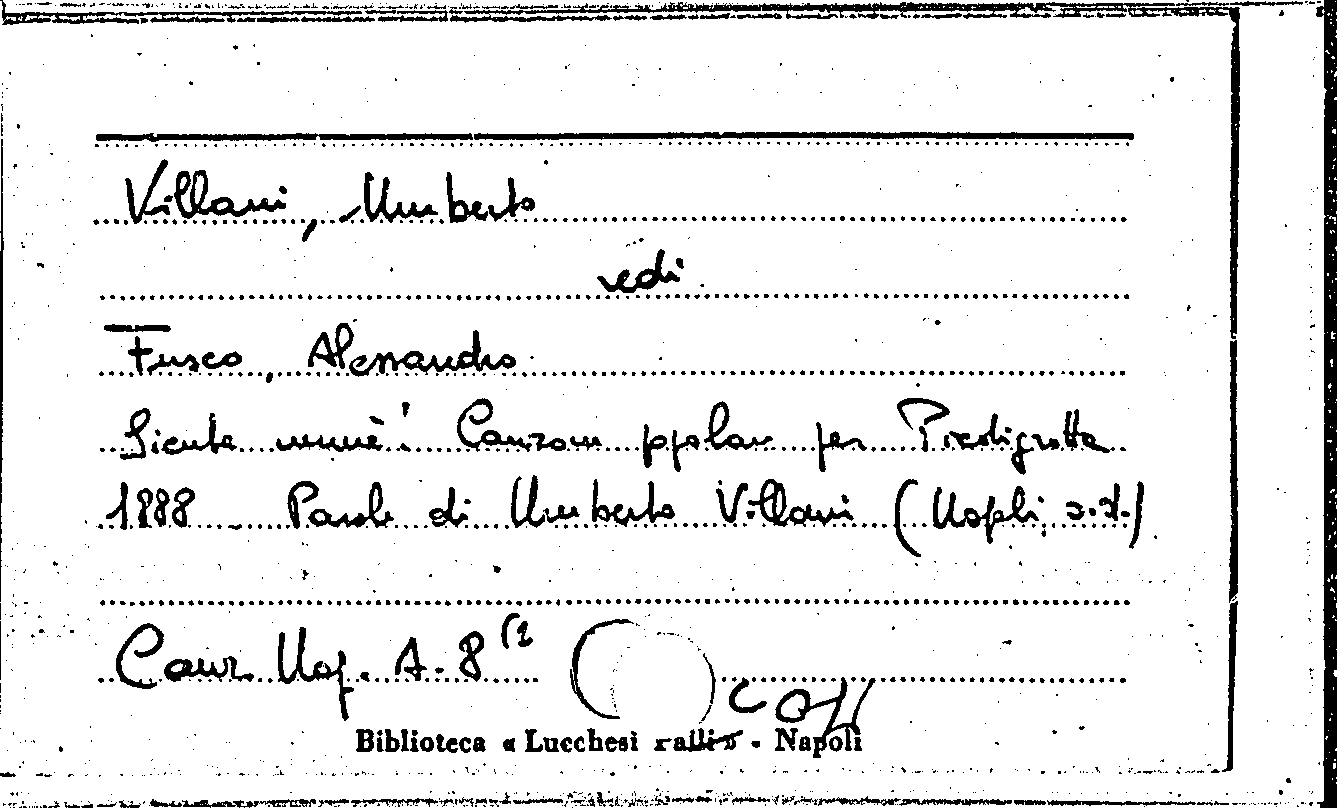 Villani, Umberto
vedi
Fusco, Alessandro
Siente nennè! Canzone ppolare per Piedigrotta
1888 - Parole di Umberto Villani (Napoli, s.d.)
Canz. Nap. A. 8 (2
Biblioteca « Lucchesi ralli » - Napoli